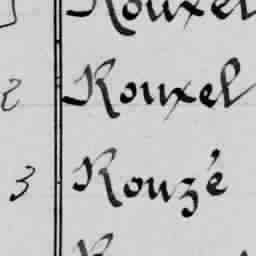 Rouxel
2 Rouxel
3 Rouzé